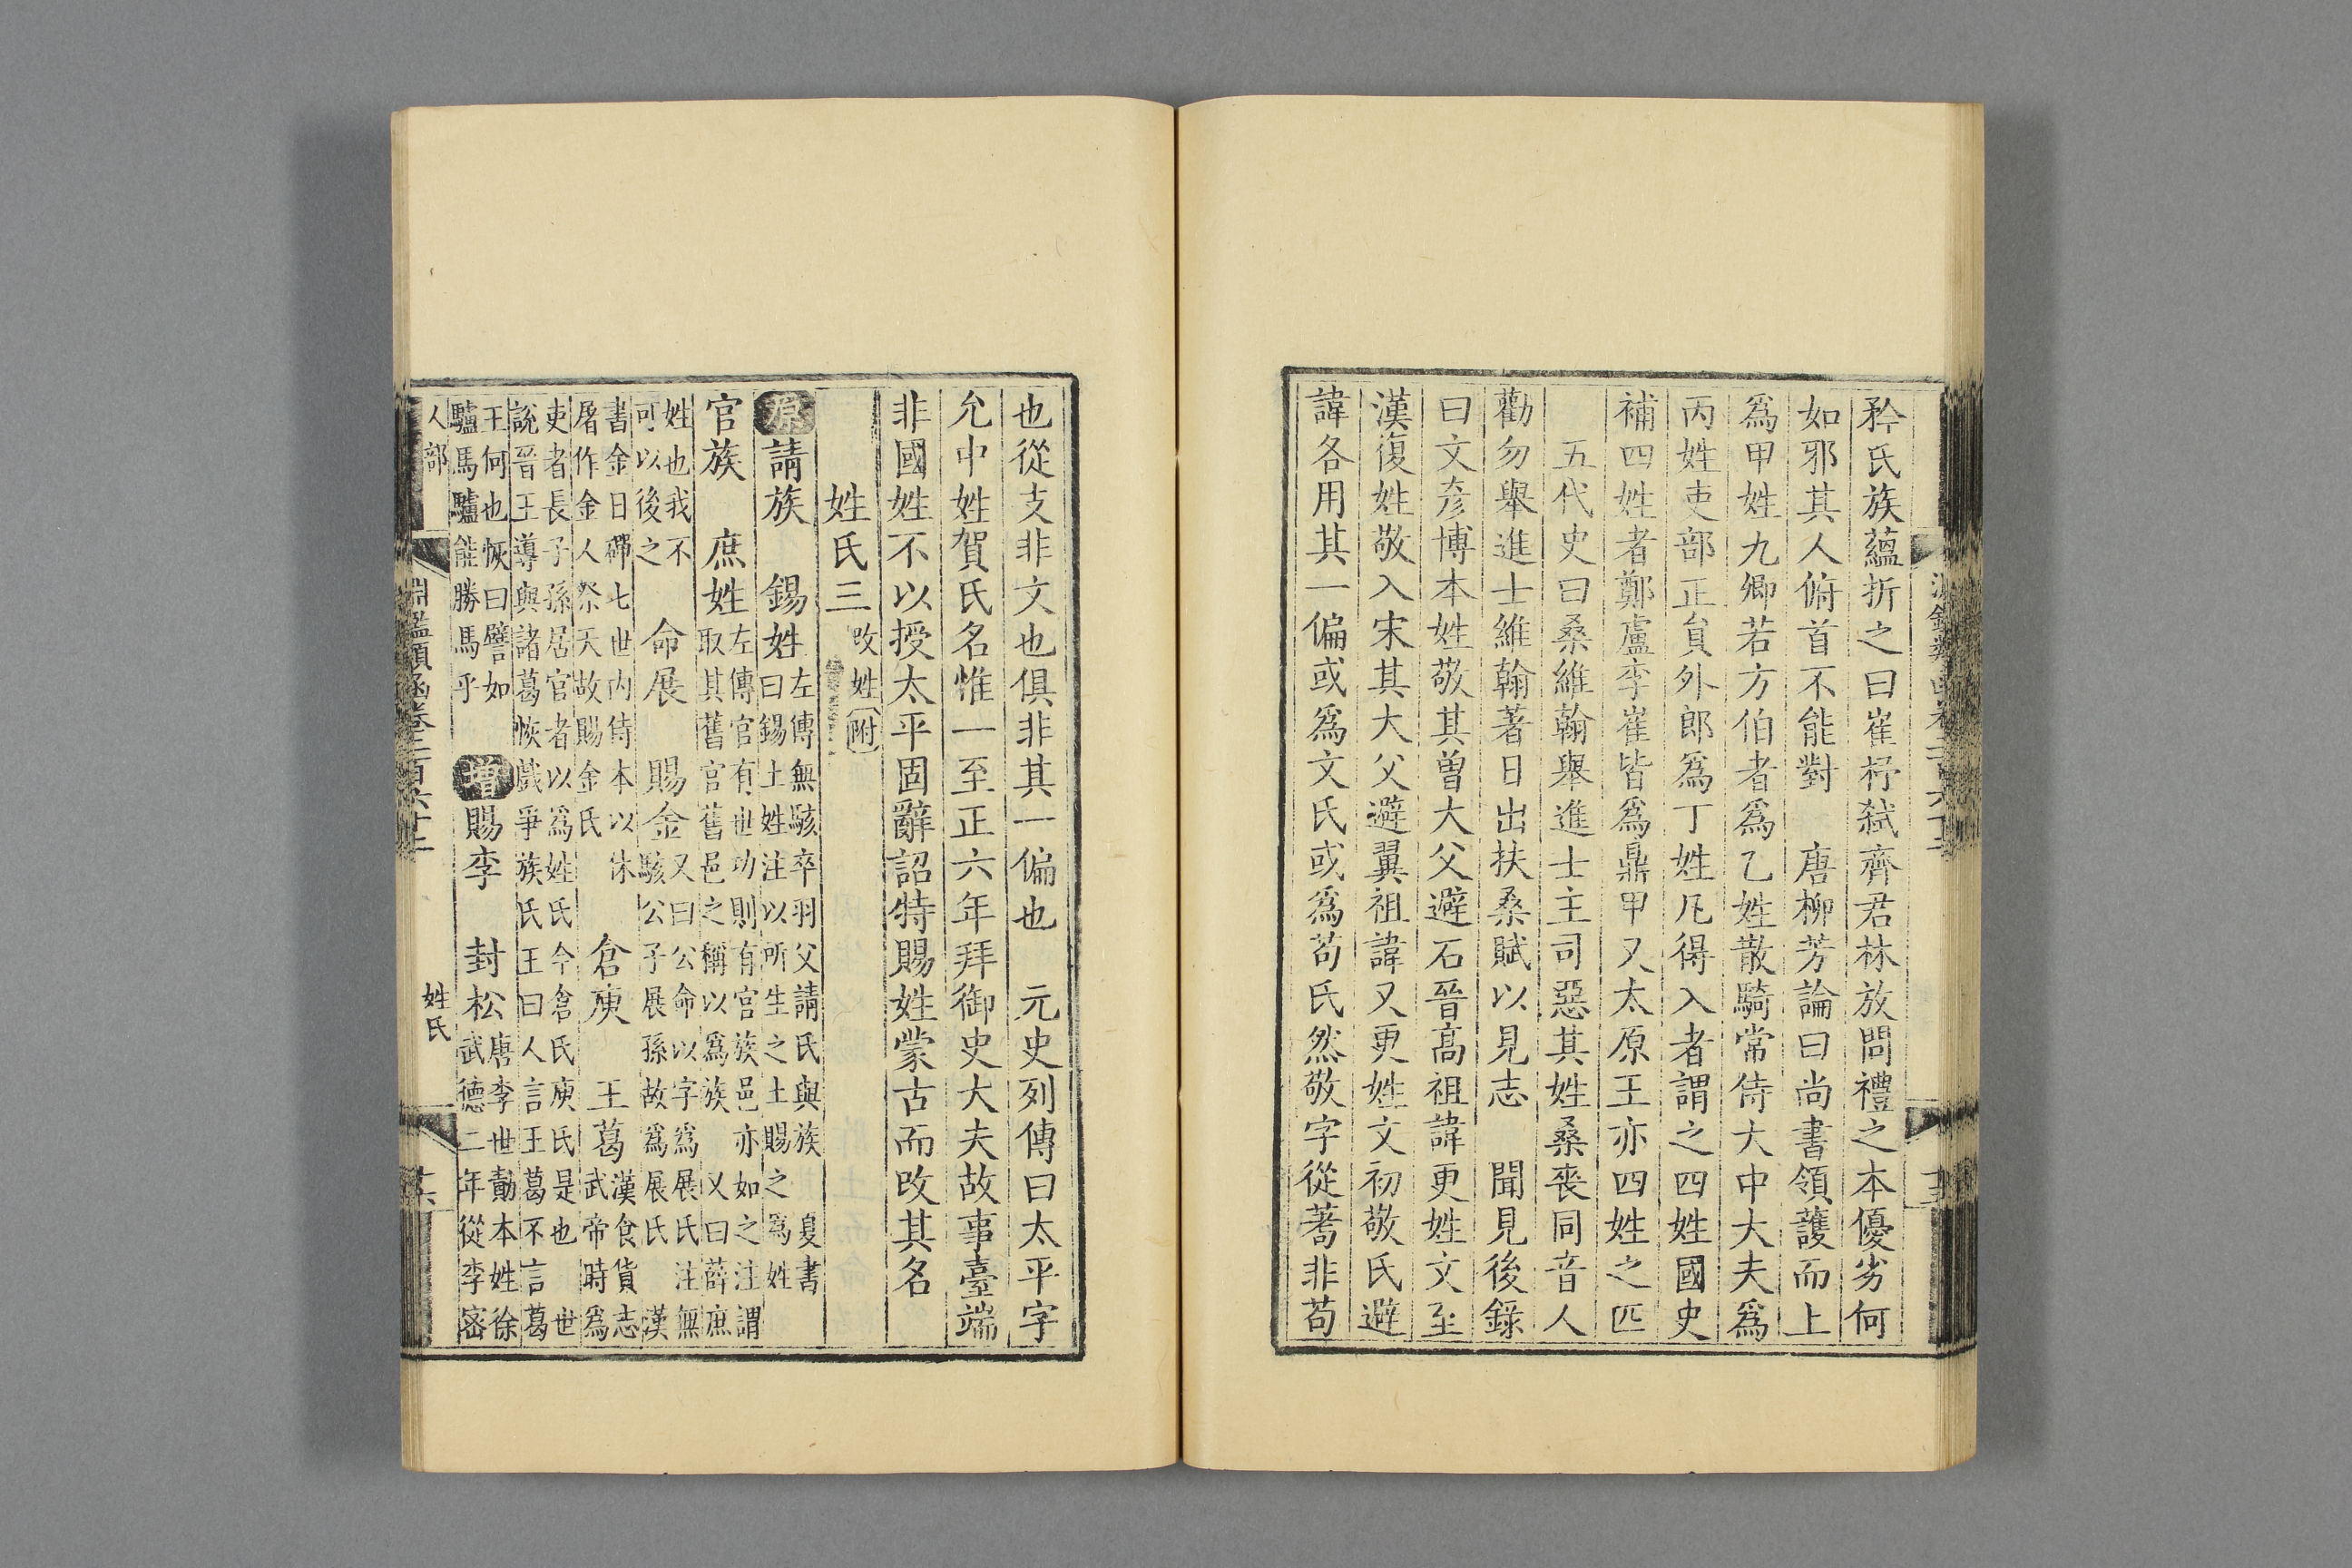 矜氏族蘊折之曰崔杼弑齊君林放問禮之本優劣何
如邪其人俯首不能對　唐柳芳論曰尚書領護而上
爲甲姓九卿若方伯者爲乙姓散騎常侍大中大夫爲
丙姓吏部正貟外郎爲丁姓凡得入者謂之四姓國史
補四姓者鄭盧李崔皆爲鼎甲又太原王亦四姓之匹
五代史曰桑維翰舉進士主司惡其姓桑喪同音人
勸勿舉進士維翰著日出扶桑賦以見志　聞見後錄
曰文彥博本姓敬其曾大父避石晉高祖諱更姓文至
漢復姓敬入宋其大父避翼祖諱又更姓文初敬氏避
諱各用其一偏或爲文氏或爲苟氏然敬字從蒟非苟
也從攴非文也俱非其一偏也　元史列傳曰太平字
允中姓賀氏名惟一至正六年拜御史大夫故事臺端
非國姓不以授太平固辭詔特賜姓蒙古而改其名
姓氏三 改姓附
原請族　錫姓 左傳無駭卒羽父請氏與族　夏書
曰錫土姓注以所生之土賜之爲姓
官族　庶姓 左傳官有世功則有官族邑亦如之注謂
取其舊官舊邑之稱以爲族　又曰薛庶
姓也我不
可以後之　命展　賜金 又曰公命以字爲展氏注無
駭公子展孫故爲展氏　漢
書金日磾七世内侍本以休
屠作金人祭天故賜金氏　倉庾　王葛 漢食貨志
武帝時爲
吏者長子孫居官者以爲姓氏今倉氏庾氏是也　世
說晉王導與諸葛恢戲爭族氏王曰人言王葛不言葛
王何也恢曰譬如
驢馬驢能勝馬乎　增賜李　封松 唐李世勣本姓徐
武德二年從李密
人部　淵鑑類函卷二百六十二　姓氏　十六